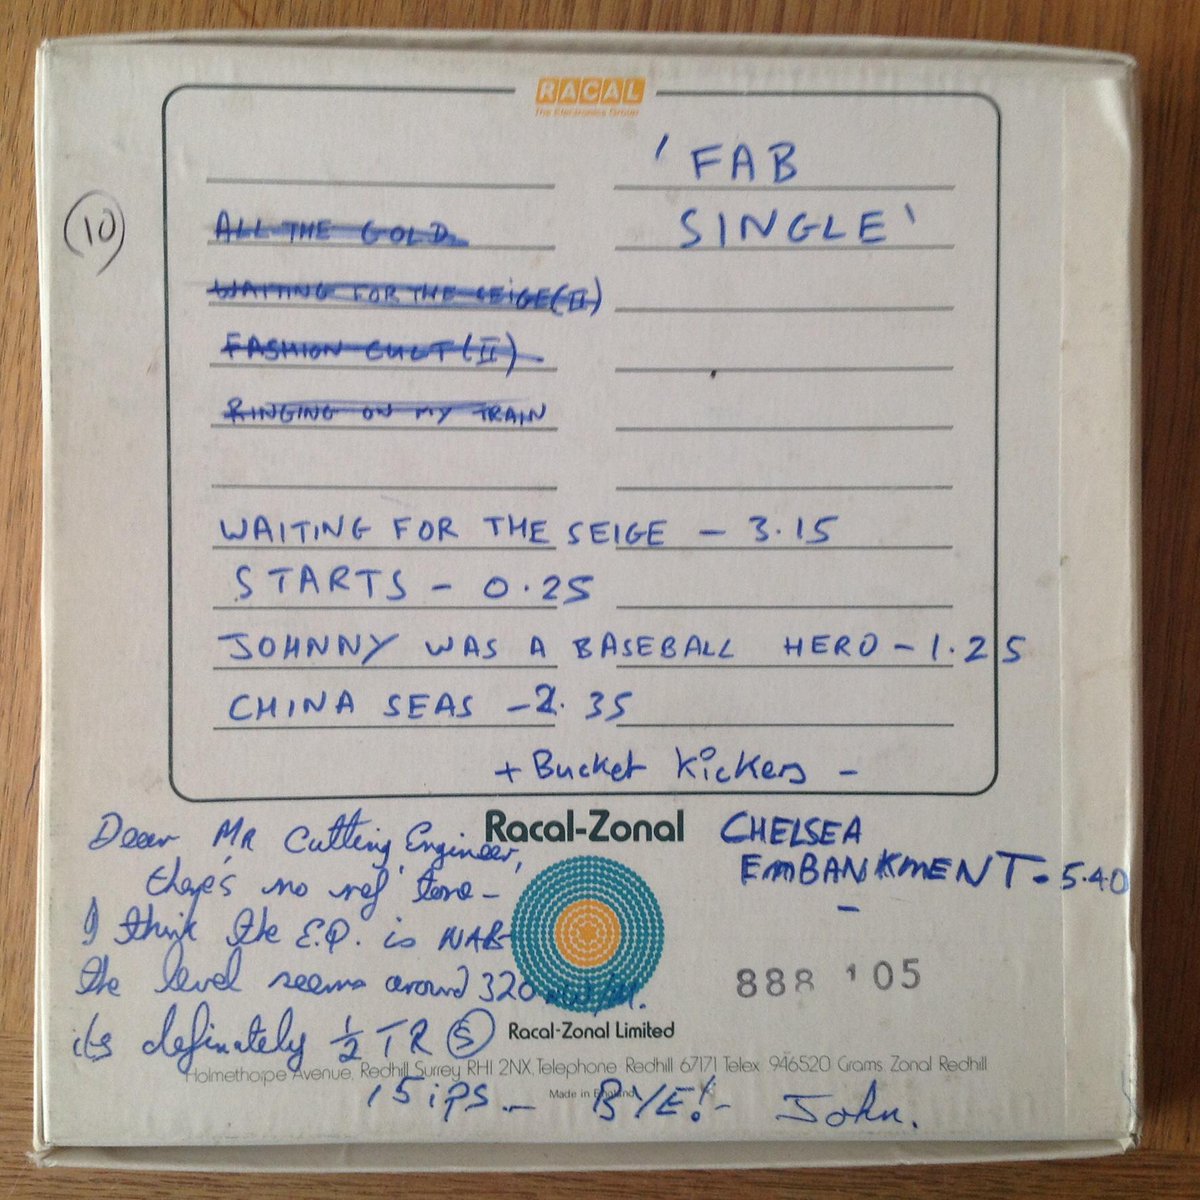 RACAL
The Electronics Group
'FAB
SINGLE'
10
ALL THE GOLD
WAITING FOR THE SEIGE (II)
FASHION CULT (II)
RINGING ON MY TRAIN
WAITING FOR THE SEIGE - 3.15
STARTS - 0.25
JOHNNY WAS A BASEBALL HERO - 1.25
CHINA SEAS - 2.35
+ Bucket Kickers -
Racal-Zonal
CHELSEA
EMBANKMENT - 5.40
-
Dear Mr Cutting Engineer,
there's no ref tone -
I think the E.Q. is NAB -
the level seems around 320
its definately 1/2 TR S
15 ips - BYE! - John.
888 105
Racal-Zonal Limited
Holmethorpe Avenue, Redhill Surrey RH1 2NX, Telephone Redhill 67171 Telex 946520 Grams Zonal Redhill
Made in England